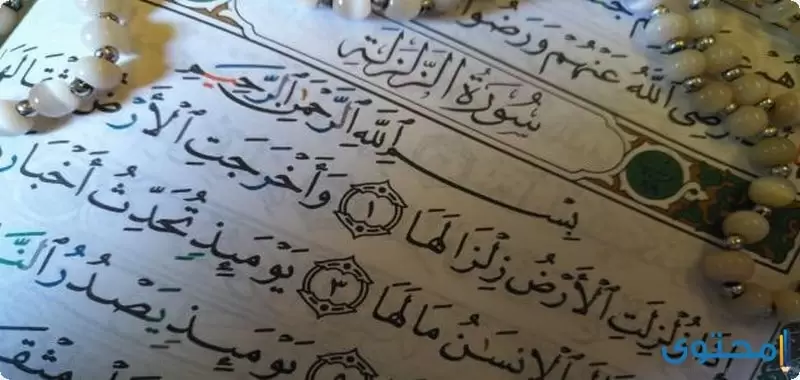 رَّضِيَ ٱللَّهُ عَنْهُمْ وَرَضُوا
سُورَةُ ٱلزَّلْزَلَةِ
بِسْمِ ٱللَّهِ ٱلرَّحْمَٰنِ ٱلرَّحِيمِ
زُلْزِلَتِ ٱلْأَرْضُ زِلْزَالَهَا ١ وَأَخْرَجَتِ ٱلْأَرْضُ
ٱلْإِنسَٰنُ مَا لَهَا ٣ يَوْمَئِذٍ تُحَدِّثُ أَخْبَارَ
يَوْمَئِذٍ يَصْدُرُ ٱلنَّا
مِثْقَـ
محتوى